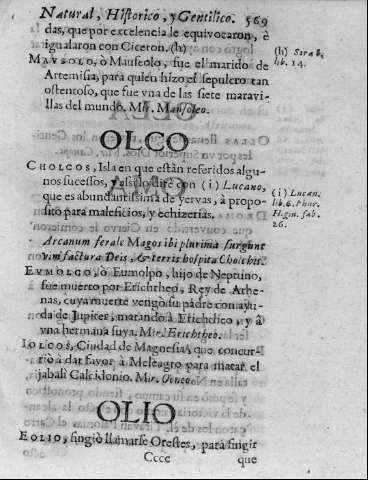 Natural, Historico, y Gentilico. 569
das, que por excelencia le equivocaron, è
igualaron con Ciceron. (h)
(h) Strab.
lib. 14.
MAVSOLO, ò Mauseolo, fue el marido de
Artemisia, para quien hizo el sepulcro tan
ostentoso, que fue vna de las siete maravi-
llas del mundo. Mir. Mausoleo.
OLCO
CHOLCOS, Isla en que estàn referidos algu-
nos sucessos, y assi lo dirè con (i) Lucano,
que es abundantissima de yervas, à propo-
sito para maleficios, y echizerias.
(i) Lucan.
lib. 6. Phar.
Higin. fab.
26.
Arcanum ferale Magos ibi plurima surgunt
Vim factura Deis, & terris hospita Cholchis.
EVMOLCO, ò Eumolpo, hijo de Neptuno,
fue muerto por Erichtheo, Rey de Athe-
nas, cuya muerte vengò su padre con ayu-
da de Jupiter, matando à Erichdico, y à
vna hermana suya. Mir. Erichtheo.
IOLCOS, Ciudad de Magnesia, que concur-
riò à dar favor à Meleagro para matar el
jabali Calcidonio. Mir. Oeneo.
OLIO
EOLIO, fingiò llamarse Orestes, para fingir
Cccc que